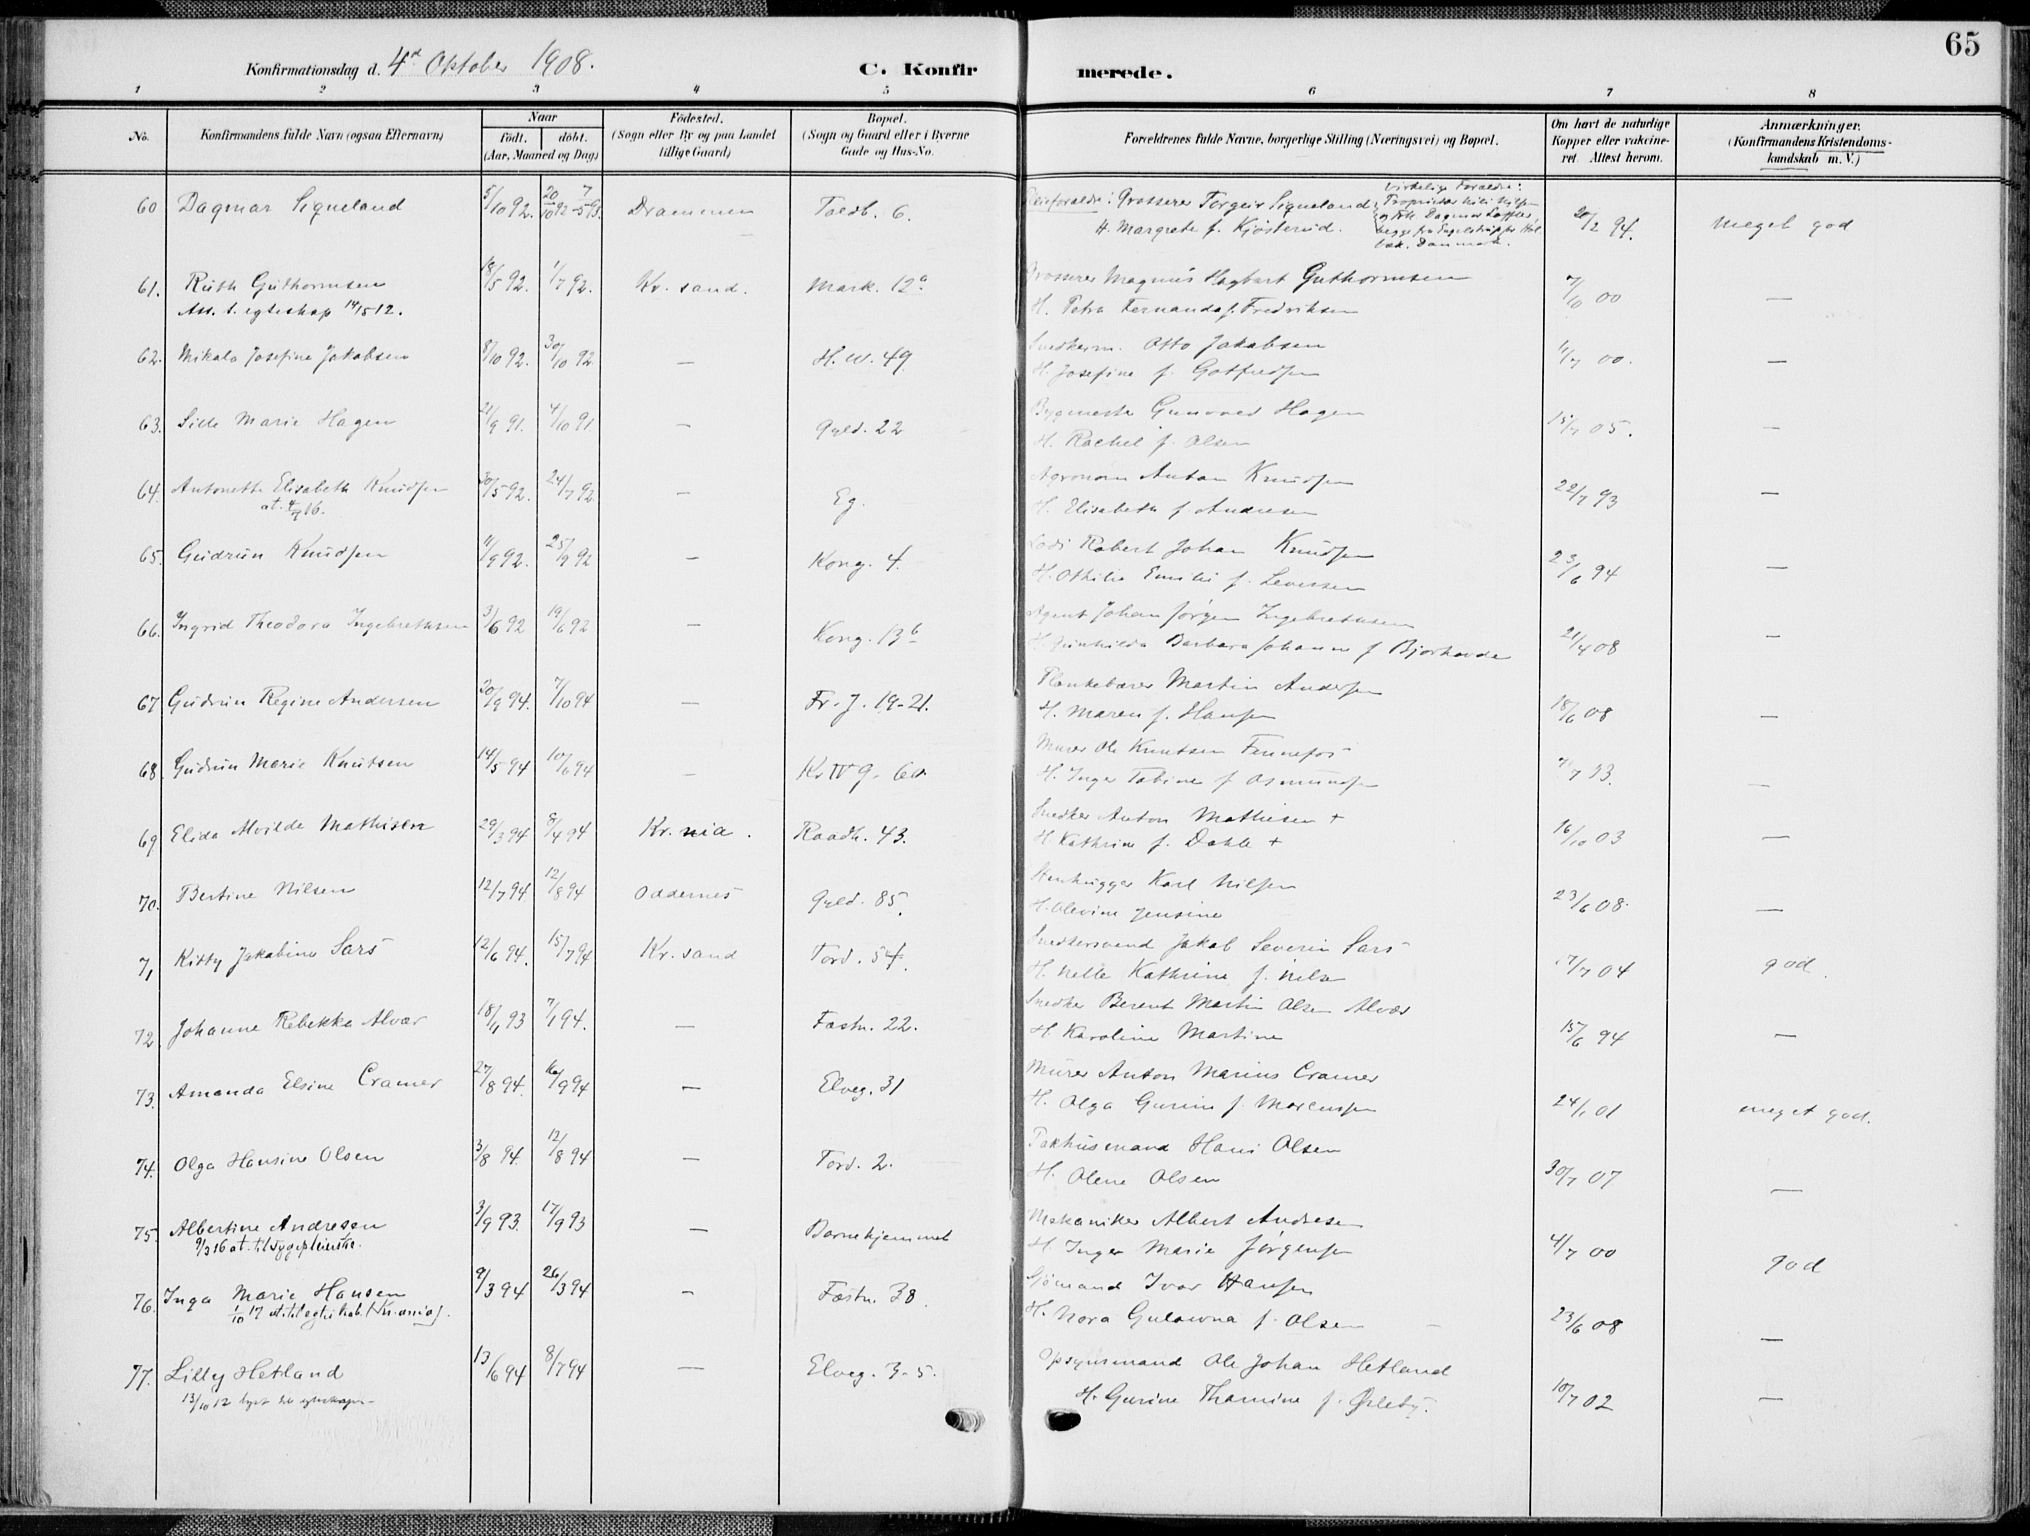 65
Konfirmationsdag d. 4d Oktober 1908.
C. Konfirmerede.
1 2 3 4 5 6 7 8
No.
Konfirmandens fulde Navn (ogsaa Efternavn)
Naar
født. døbt.
(Aar, Maaned og Dag)
Fødested.
(Sogn eller By og paa Landet
tillige Gaard)
Bopæl.
(Sogn og Gaard eller i Byerne
Gade og Hus-No.
Forældrenes fulde Navne, borgerlige Stilling (Næringsvei) og Bopæl.
Om havt de naturlige
Kopper eller vakcine-
ret. Attest herom.
Anmærkninger.
(Konfirmandens Kristendoms-
kundskab m. V.)
60 Dagmar Siqueland 5/10 92. 20/10 92 - 7/5 93. Drammen Toldb. 6. Pleieforældre: Grosserer Torgeir Siqueland 20/2 94. Meget god
H. Margrete f. Kjøsterud.
Virkelige Forældre:
Proprietær
og Frk. Dagmar
begge fra
Danmark.
61. Ruth Guthormsen 18/5 92. 1/7 92. Kr. sand. Mark. 12a Grosserer Magnus Hagbart Guthormsen 7/10 00 —
Att. t. egteskap 14/5 12. H. Petra Fernanda f. Fredriksen
62. Mikala Josefine Jakobsen 8/10 92. 30/10 92. — H. W. 49 Snedkerm. Otto Jakobsen 11/7 00. —
H. Josefine f. Gotfredsen
63. Sille Marie Hagen 21/9 91. 4/10 91 — Gyld. 22 Bygmester Gunvald Hagen 15/7 05. —
H. Rachel f. Olsen
64. Antonette Elisabeth Knudsen 30/5 92. 24/7 92. — Eg. Agronom Anton Knudsen 22/7 93 —
at. 4/7 16. H. Elisabeth f. Andresen
65. Gudrun Knudsen 11/9 92. 25/9 92 — Kong. 4. Lods Robert Johan Knudsen 23/6 94 —
H. Othilie Emilie f. Levissen
66. Ingrid Theodora Ingebrethsen 3/6 92 19/6 92 — Kong. 13b Agent Johan Jørgen Ingebrethsen 21/4 08 —
H. Gunhilda Barbara Johanne f. Bjorhovde
67 Gudrun Regine Andersen 20/9 94. 7/10 94 — Fr. J. 19-21. Plankebærer Martin Andersen 18/6 08 —
H. Maren f. Hansen
68. Gudrun Marie Knutsen 14/5 94 10/6 94 — Kr IV g. 60. Murer Ole Knutsen Fennefos 7 93. —
H. Inger Tobine f. Osmundsen
69 Elida Alvilde Mathisen 29/3 94 8/4 94 Kr. nia. Raadh. 43. Snedker Anton Mathisen + 16/10 03 —
H. Kathrine f. Dahle +
70. Bertine Nilsen 12/7 94 12/8 94 Oddernes Gyld. 85. Stenhugger Karl Nilsen 23/6 08. —
H. Olevine Jensine
71 Kitty Jakobine Sars 12/6 94. 15/7 94 Kr. sand Tord. 54. Snedkersvend Jakob Severin Sars 17/7 04 god.
H. Nelle Kathrine f. Nilsen
72. Johanne Rebekka Alvær 18/11 93 7/1 94. — Fæstn. 22. Snedker Berent Martin Olsen Alvær 15/6 94 —
H. Karoline Martine
73. Amanda Elsine Cramer 27/8 94. 16/9 94 — Elveg. 31 Murer Anton Marius Cramer 24/1 01 meget god.
H. Olga Gurine f. Marcussen
74. Olga Hansine Olsen 3/8 94. 12/8 94 — Tord. 2. Pakhusmand Hans Olsen 30/7 07 —
H. Olene Olsen
75. Albertine Andresen 3/9 93. 17/9 93 — Barnehjemmet Mekaniker Albert Andresen 4/7 00 god
9/3 16 at. til sygepleierske. H. Inger Marie Jørgensen
76. Inga Marie Hansen 9/3 94 26/3 94 — Fæstn. 38. Sjømand Ivar Hansen 23/6 08 —
1/10 17 at. til egteskab (Kr.ania). H. Nora Gulowna f. Olsen
77. Lilly Hetland 13/6 94 8/7 94 — Elveg. 3-5. Opsynsmand Ole Johan Hetland 10/7 02 —
13/10 12 lyst til egteskap H. Gurine Thomine f. Ørleby.